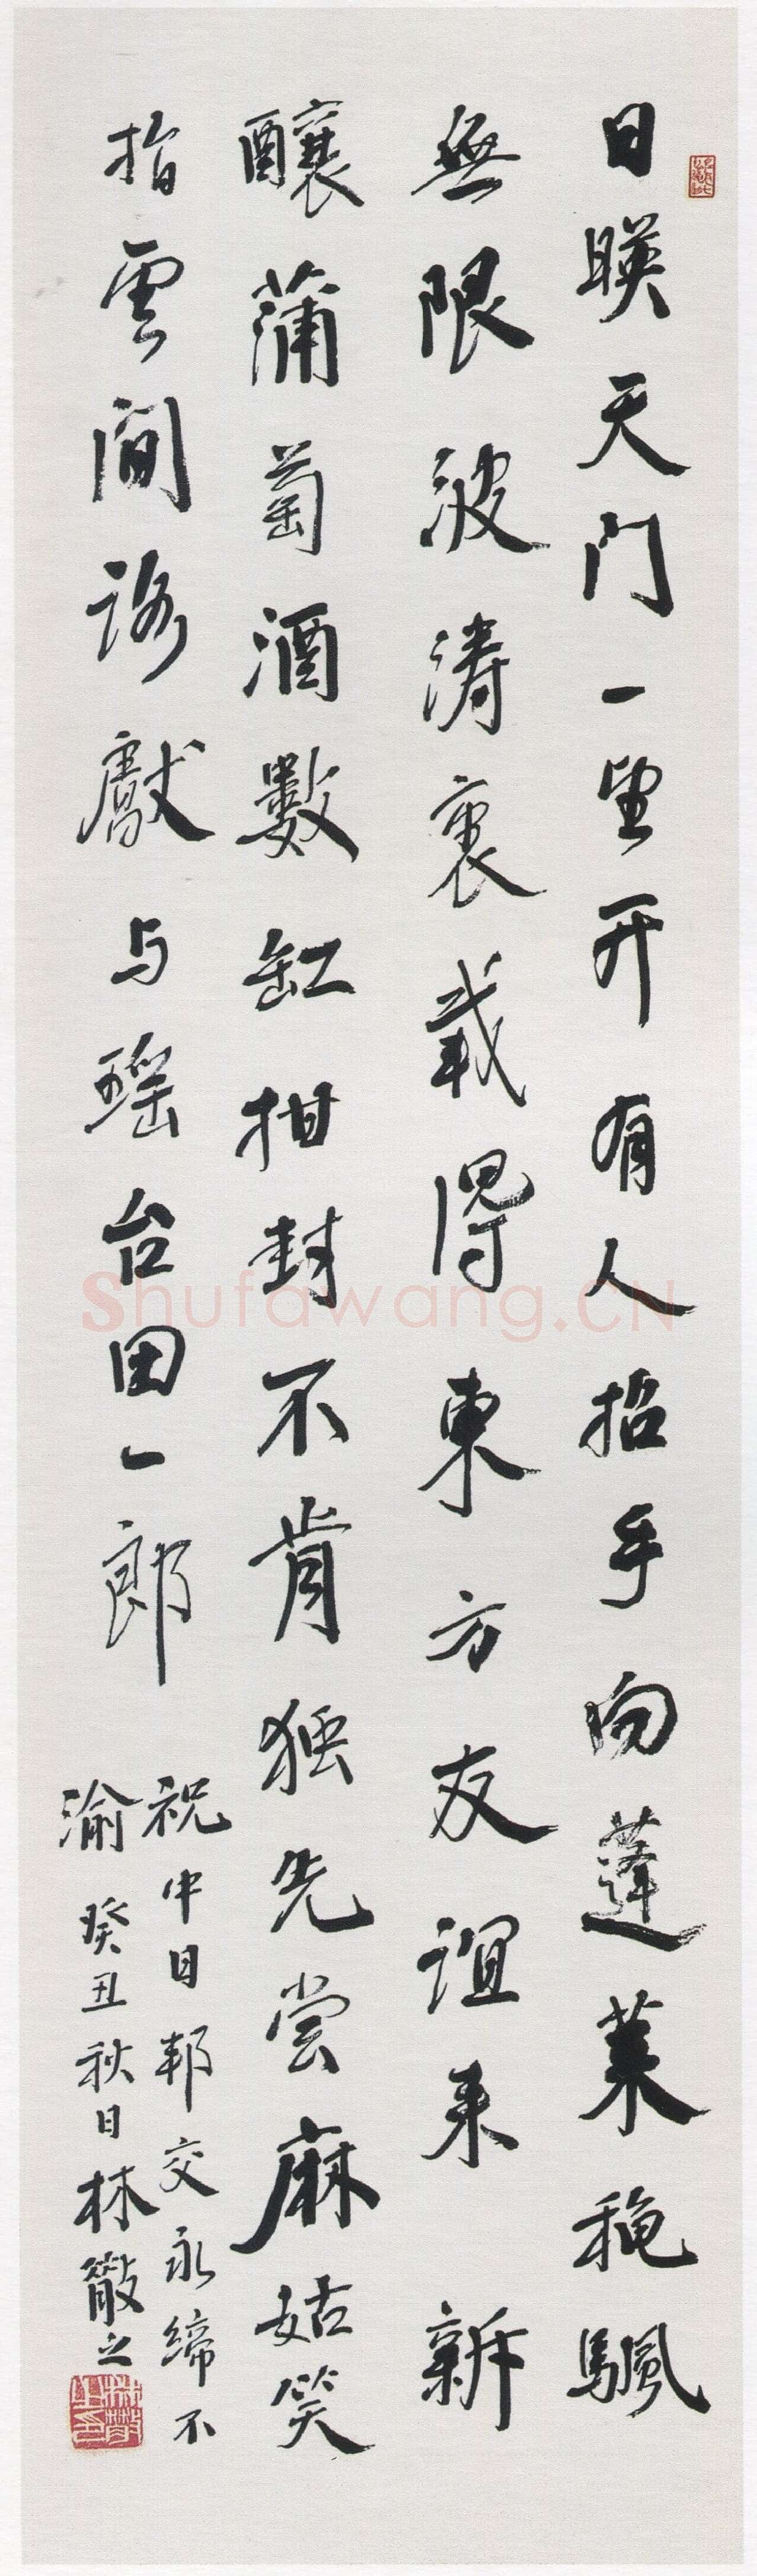 日暎天門一望开有人招手向蓬莱秾颿
無限波涛裏載得東方友谊来新
釀蒲萄酒數缸柑封不肯独先尝麻姑笑
指雲间路獻与瑶台田一郎
祝中日邦交永缔不
渝癸丑秋日林散之
Shufawang.CN